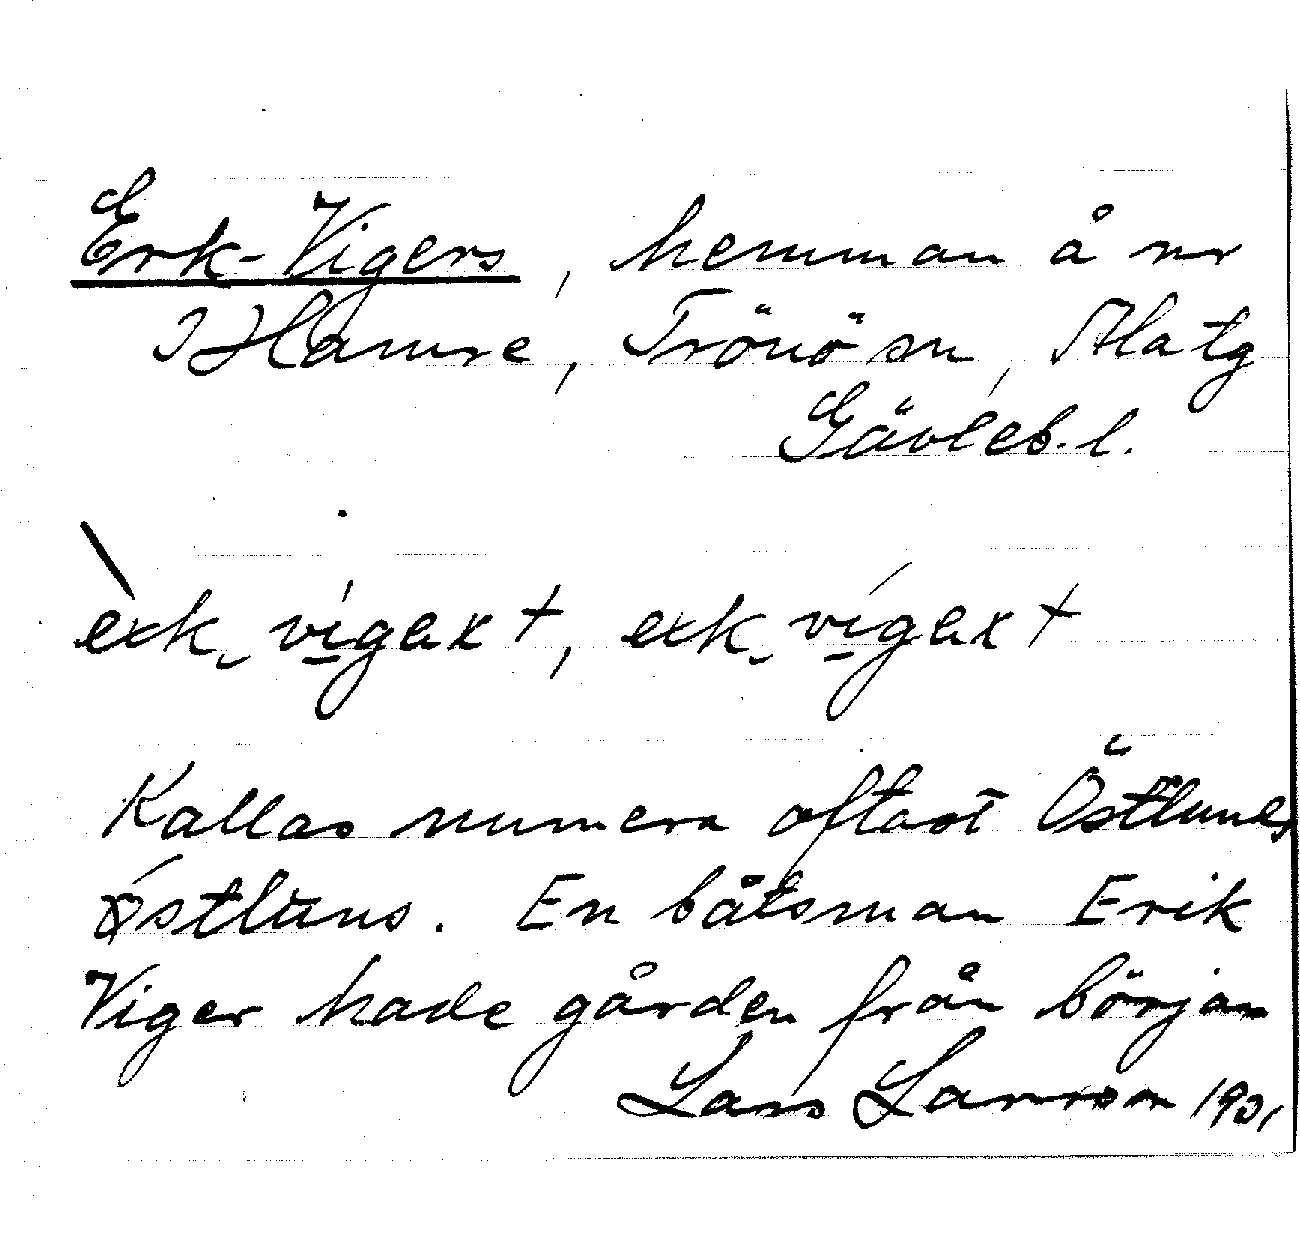 Erk-Vigers, hemman å nr
2 Hamre, Trönö sn, Ala tg
Gävleb. l.
erk vig ext, erk vigext
Kallas numera oftast Östlunds
östlùns. En båtsman Erik
Viger hade gården från början
Lars Larsson